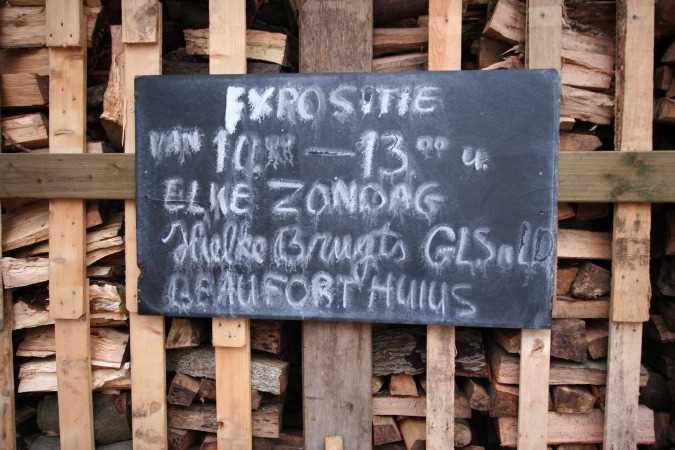 EXPOSITIE
VAN 10.00 — 13.00 u.
ELKE ZONDAG
Hielke Brugts GLS n LD
BEAUFORT HUIUS